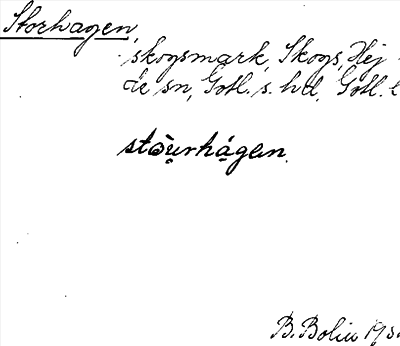 Storhagen,
skogsmark, Skogs, Hej-
de sn, Gotl. s. hd, Gotl. l
stòu̯rhágen.
B. Bolin 193